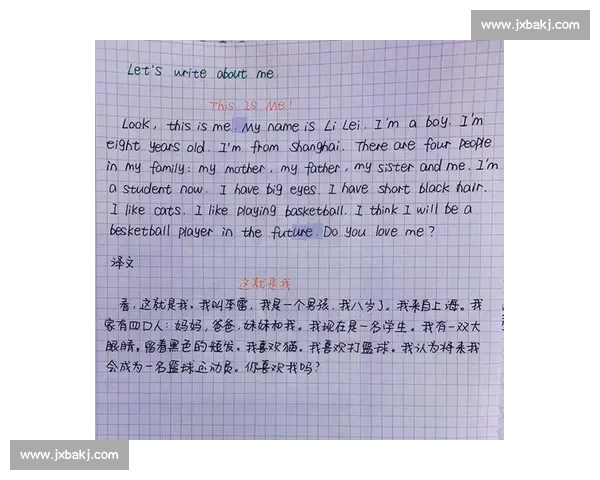 www.jxbakj.com
Let's write about me.
This Is Me!
Look, this is me. My name is Li Lei. I'm a boy. I'm
eight years old. I'm from Shanghai. There are four people
in my family: my mother, my father, my sister and me. I'm
a student now. I have big eyes. I have short black hair.
I like cats. I like playing basketball. I think I will be a
besketball player in the future. Do you love me?
译文
这就是我
看,这就是我。我叫李雷,我是一个男孩,我八岁了。我来自上海。我
家有四口人:妈妈,爸爸,妹妹和我。我现在是一名学生。我有一双大
眼睛,留着黑色的短发。我喜欢猫。我喜欢打篮球。我认为将来我
会成为一名篮球运动员。你喜欢我吗?
www.jxbakj.com